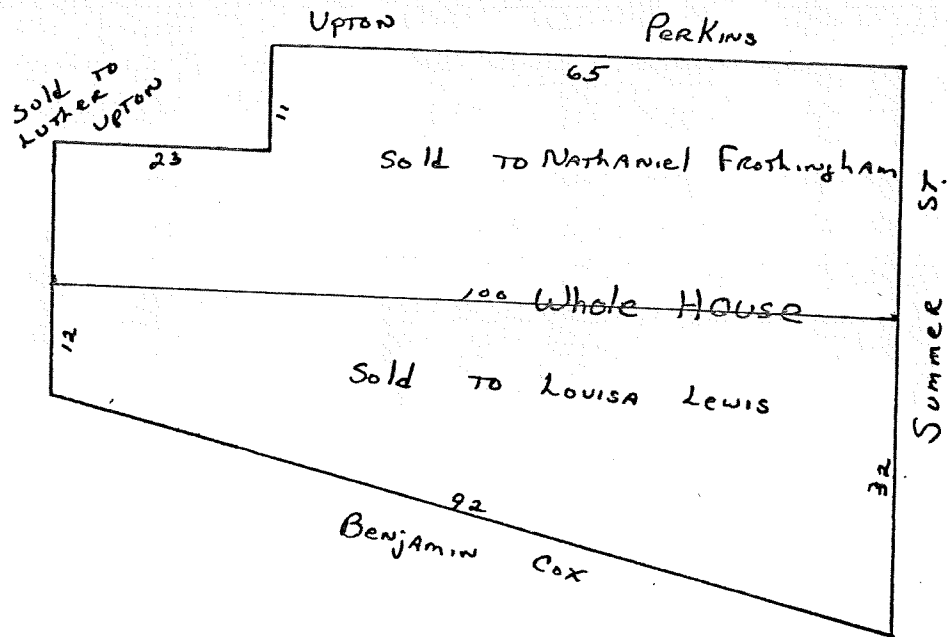 UPTON
PERKINS
65
Sold TO
LUTHER TO
UPTON
11
23
Sold TO NATHANIEL FROTHINGHAM
SUMMER ST.
100 Whole House
12
Sold TO LOUISA LEWIS
32
92
BENJAMIN COX